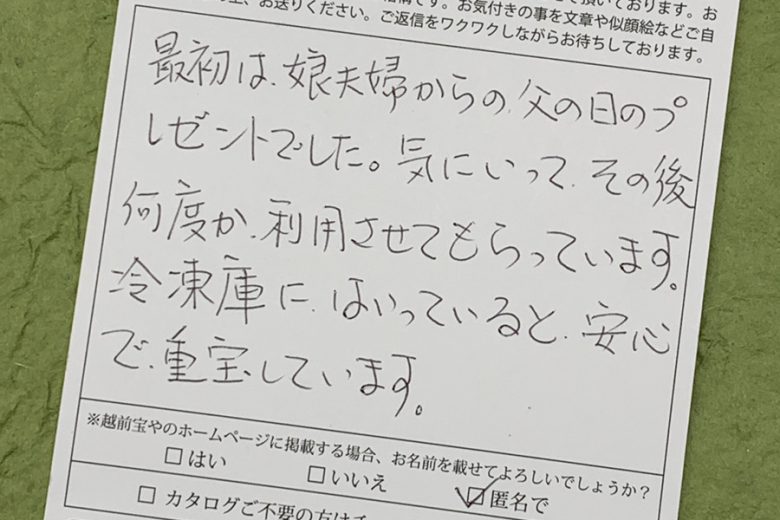 て頂いております。お
です。お気付きの事を文章や似顔絵などご自
、お送りください。ご返信をワクワクしながらお待ちしております。
最初は、娘夫婦からの、父の日のプ
レゼントでした。気にいって、その後
何度か、利用させてもらっています。
冷凍庫に、はいっていると、安心
で、重宝しています。
※越前宝やのホームページに掲載する場合、お名前を載せてよろしいでしょうか？
□はい □いいえ ☑匿名で
□ カタログご不要の方は